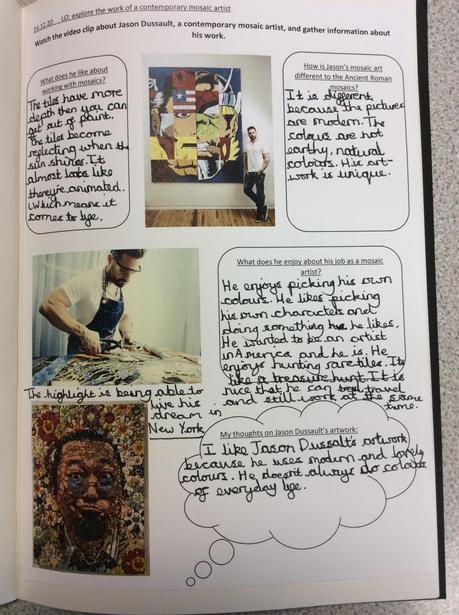 16.12.20 LO: explore the work of a contemporary mosaic artist
Watch the video clip about Jason Dussault, a contemporary mosaic artist, and gather information about
his work.
What does he like about
working with mosaics?
The tiles have more
depth then you can
get out of paint.
The tiles become
reglecting when the
sun shines. It
almost looks like
they're animated.
Which means it
comes to lye.
How is Jason's mosaic art
different to the Ancient Roman
mosaics?
It is different,
because the pictures
are modern. The
colours are not
earthy, natural
colours. His art-
work is unique.
What does he enjoy about his job as a mosaic
artist?
He enjoys picking his own
colours. He likes picking
his own characters and
doing something he likes.
He wanted to be an artist
in America and he is. He
enjoys hunting rare tiles. Its
like a treasure hunt. It is
nice that he can travel
and still work at the same
time.
The highlight is being able to
live his
dream in
New York
My thoughts on Jason Dussault's artwork:
I like Jason Dussalt's artwork
because he uses modern and lovely
colours. He doesn't always do colours
of everyday lye.